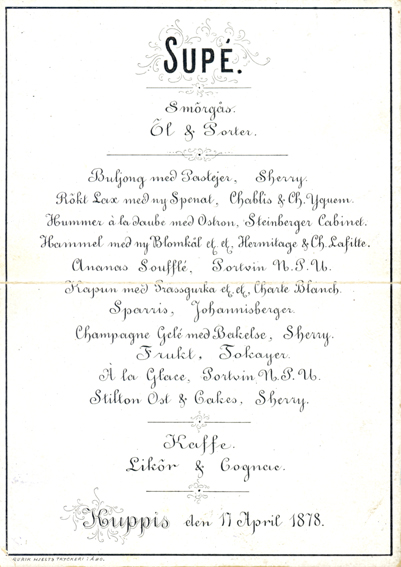 SUPÉ.
Smörgås.
Öl & Porter.
Buljong med Pastejer, Sherry.
Rökt Lax med ny Spenat, Chablis & Ch. Yquem.
Hummer à la daube med Ostron, Steinberger Cabinet.
Hammel med ny Blomkål et. et., Hermitage & Ch. Lafitte.
Ananas Soufflé, Portvin N.P.U.
Kapun med Frassgurka et. et., Charte Blanch.
Sparris, Johannisberger.
Champagne Gelé med Bakelse, Sherry.
Frukt, Tokayer.
À la Glace, Portvin N.P.U.
Stilton Ost & Cakes, Sherry.
Kaffe.
Likör & Cognac.
Kuppis den 17 April 1878.
TRYCKERI I ÅBO.